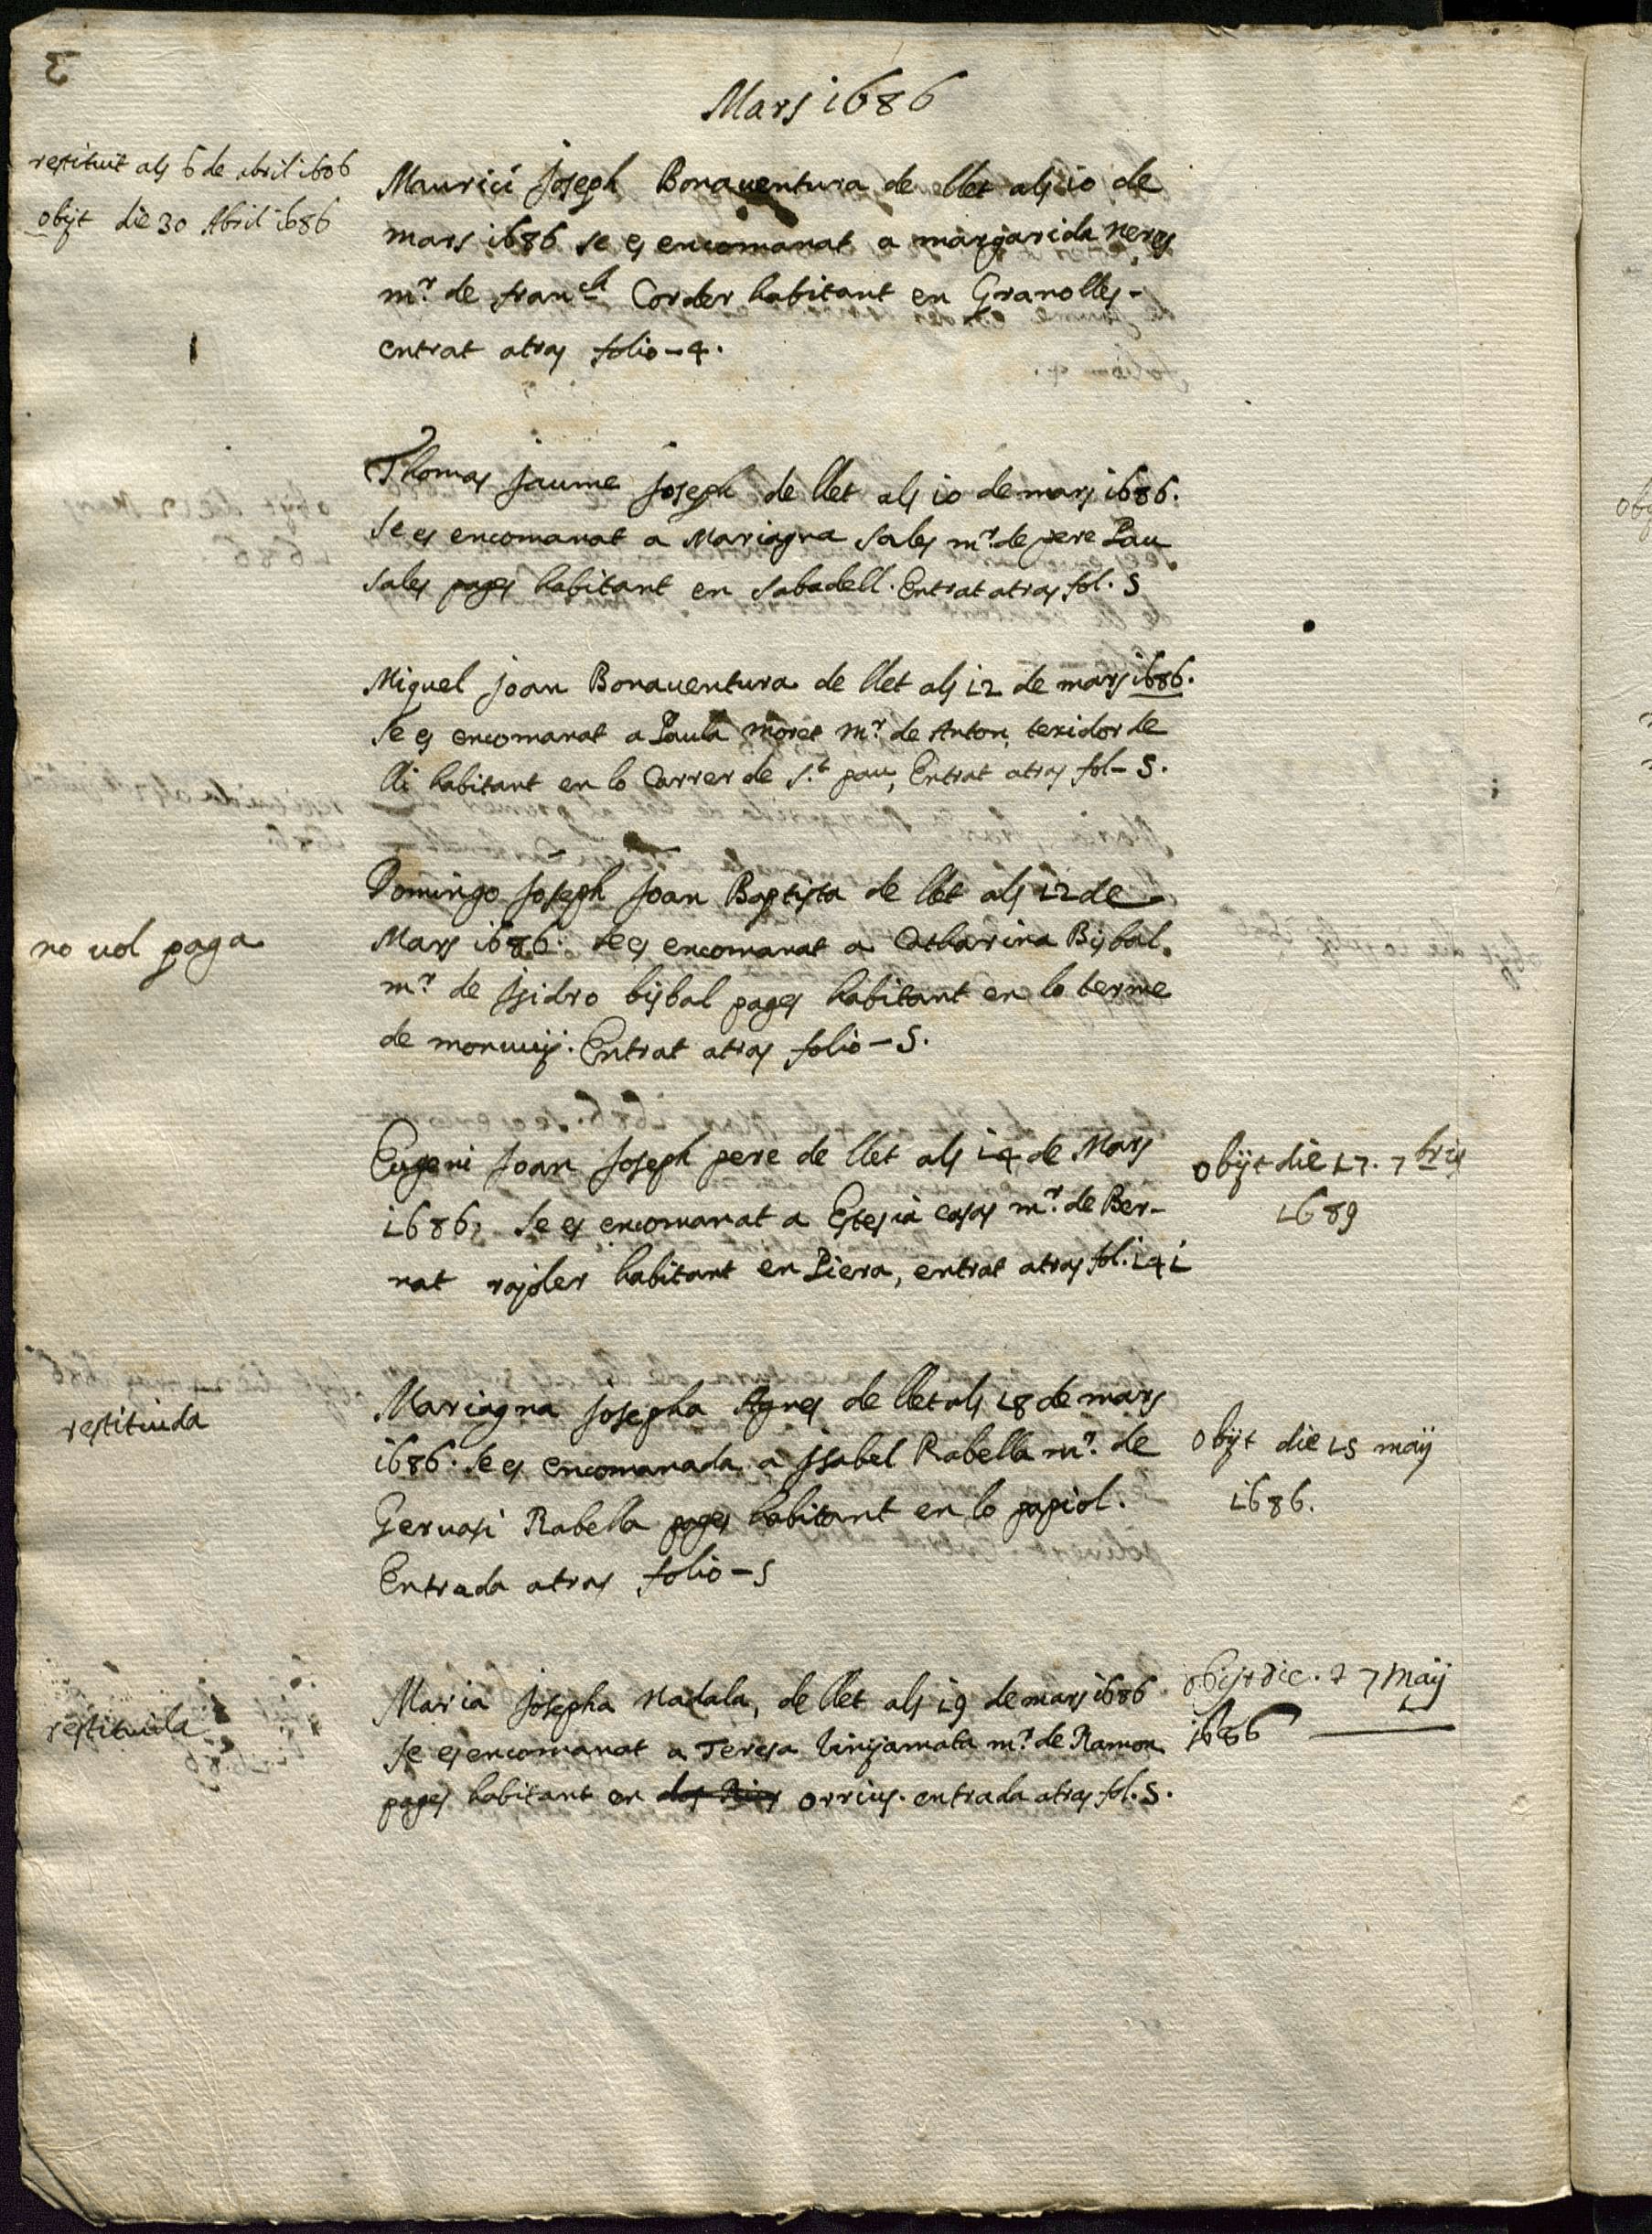 Mars 1686
restituit als 6 de abril 1686
obijt die 30 Abril 1686
Maurici Joseph Bonaventura de llet als 10 de
mars 1686 se es encomanat a margarida neres
mr. de franch Corder habitant en Granolles-
entrat atras folio-4.
Thomas Jaume Joseph de llet als 10 de mars 1686.
Se es encomanat a Mariagna Sales mr. de pere Pau
Sales pages habitant en Sabadell. Entrat atras fol. 5
Miquel Joan Bonaventura de llet als 12 de mars 1686.
Se es encomanat a Paula moret mr. de Anton, texidor de
lli habitant en lo Carrer de St. pau, Entrat atras fol-5.
Domingo Joseph Joan Baptista de llet als 12 de
no vol paga
Mars 1686. Se es encomanat a Catharina Bisbal.
mr. de Isidro bisbal pages habitant en lo terme
de monuuij. Entrat atras folio-5.
Eugeni Joan Joseph pere de llet als 14 de Mars
1686, Se es encomanat a Estesia casas mr. de Ber-
nat rajoler habitant en Piera, entrat atras fol. 141
obijt die 17. 7bris
1689
restituida
Mariagna Josepha Agnes de llet als 18 de mars
1686. Se es encomanada a Isabel Rabella mr. de
Geruasi Rabella pages habitant en lo papiol.
Entrada atras folio-5
obijt die 15 maij
1686.
restituida
Maria Josepha Nadala, de llet als 19 de mars 1686
Se es encomanat a Teresa Vinijamata mr. de Ramon
pages habitant en dos Rius orrius. entrada atras fol. 5.
obijt die. 27 Maij
1686